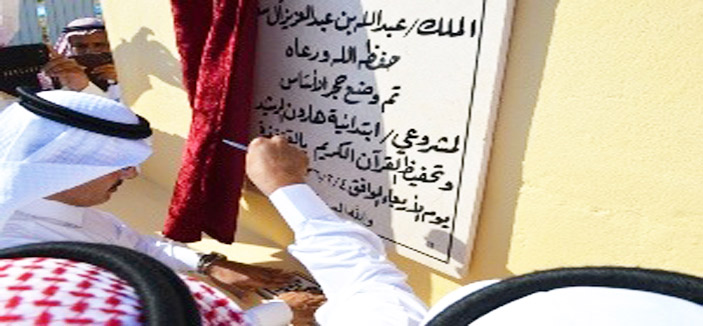 الملك/عبدالله بن عبدالعزيز آل سعو
حفظه الله ورعاه
تم وضع حجر الأساس
لمشروعي/ابتدائية هارون الرشيد
وتحفيظ القرآن الكريم بالقنفذة
يوم الأربعاء الموافق ٣٦/٢/٤
والله